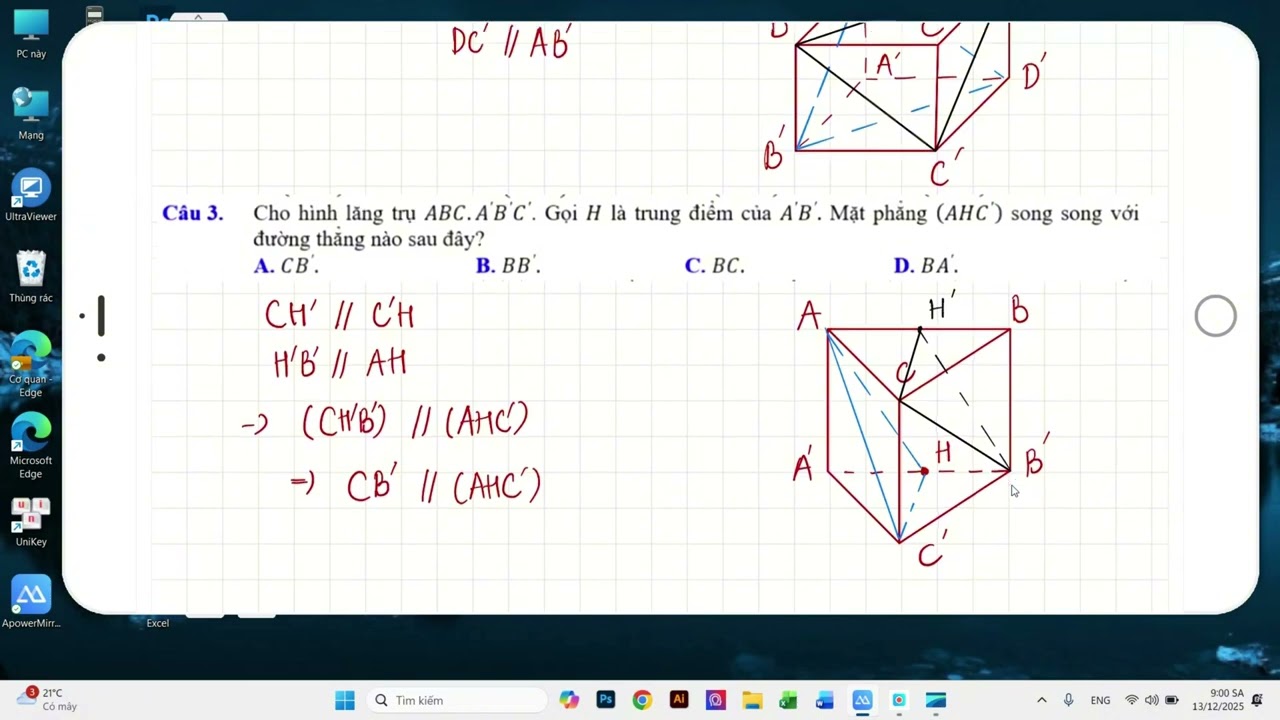 PC này
Mạng
UltraViewer
Thùng rác
Cơ quan - Edge
Microsoft Edge
UniKey
ApowerMirr...
Excel
DC' // AB'
A'
D'
B'
C'
Câu 3. Cho hình lăng trụ ABC.A'B'C'. Gọi H là trung điểm của A'B'. Mặt phẳng (AHC') song song với
đường thẳng nào sau đây?
A. CB'. B. BB'. C. BC. D. BA'.
CH' // C'H
H'B' // AH
-> (CH'B') // (AHC')
=> CB' // (AHC')
A H' B
C
A' H B'
C'
3
21°C
Có mây
Tìm kiếm
ENG
9:00 SA
13/12/2025